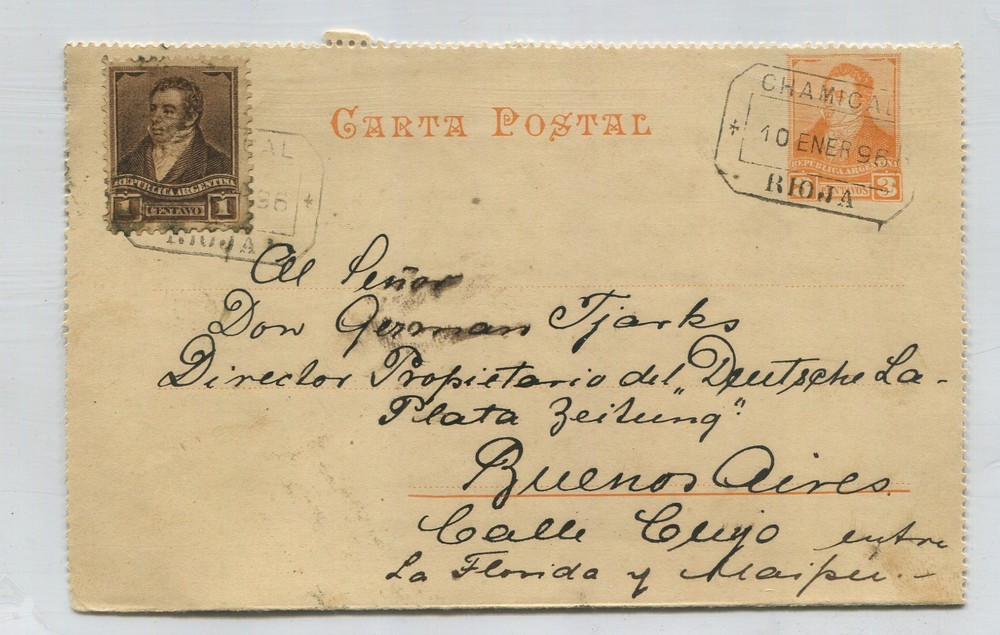 CARTA POSTAL
REPUBLICA ARGENTINA
1 CENTAVO 1
CHAMICAL
10 ENER 96
RIOJA
REPUBLICA ARGENTINA
CENTAVOS 3
AL
96
RIOJA
Al Señor
Don German Tjarks
Director Propietario del „Deutsche La-
Plata Zeitung“.
Buenos Aires.
Calle Cuyo entre
La Florida y Maipu.-